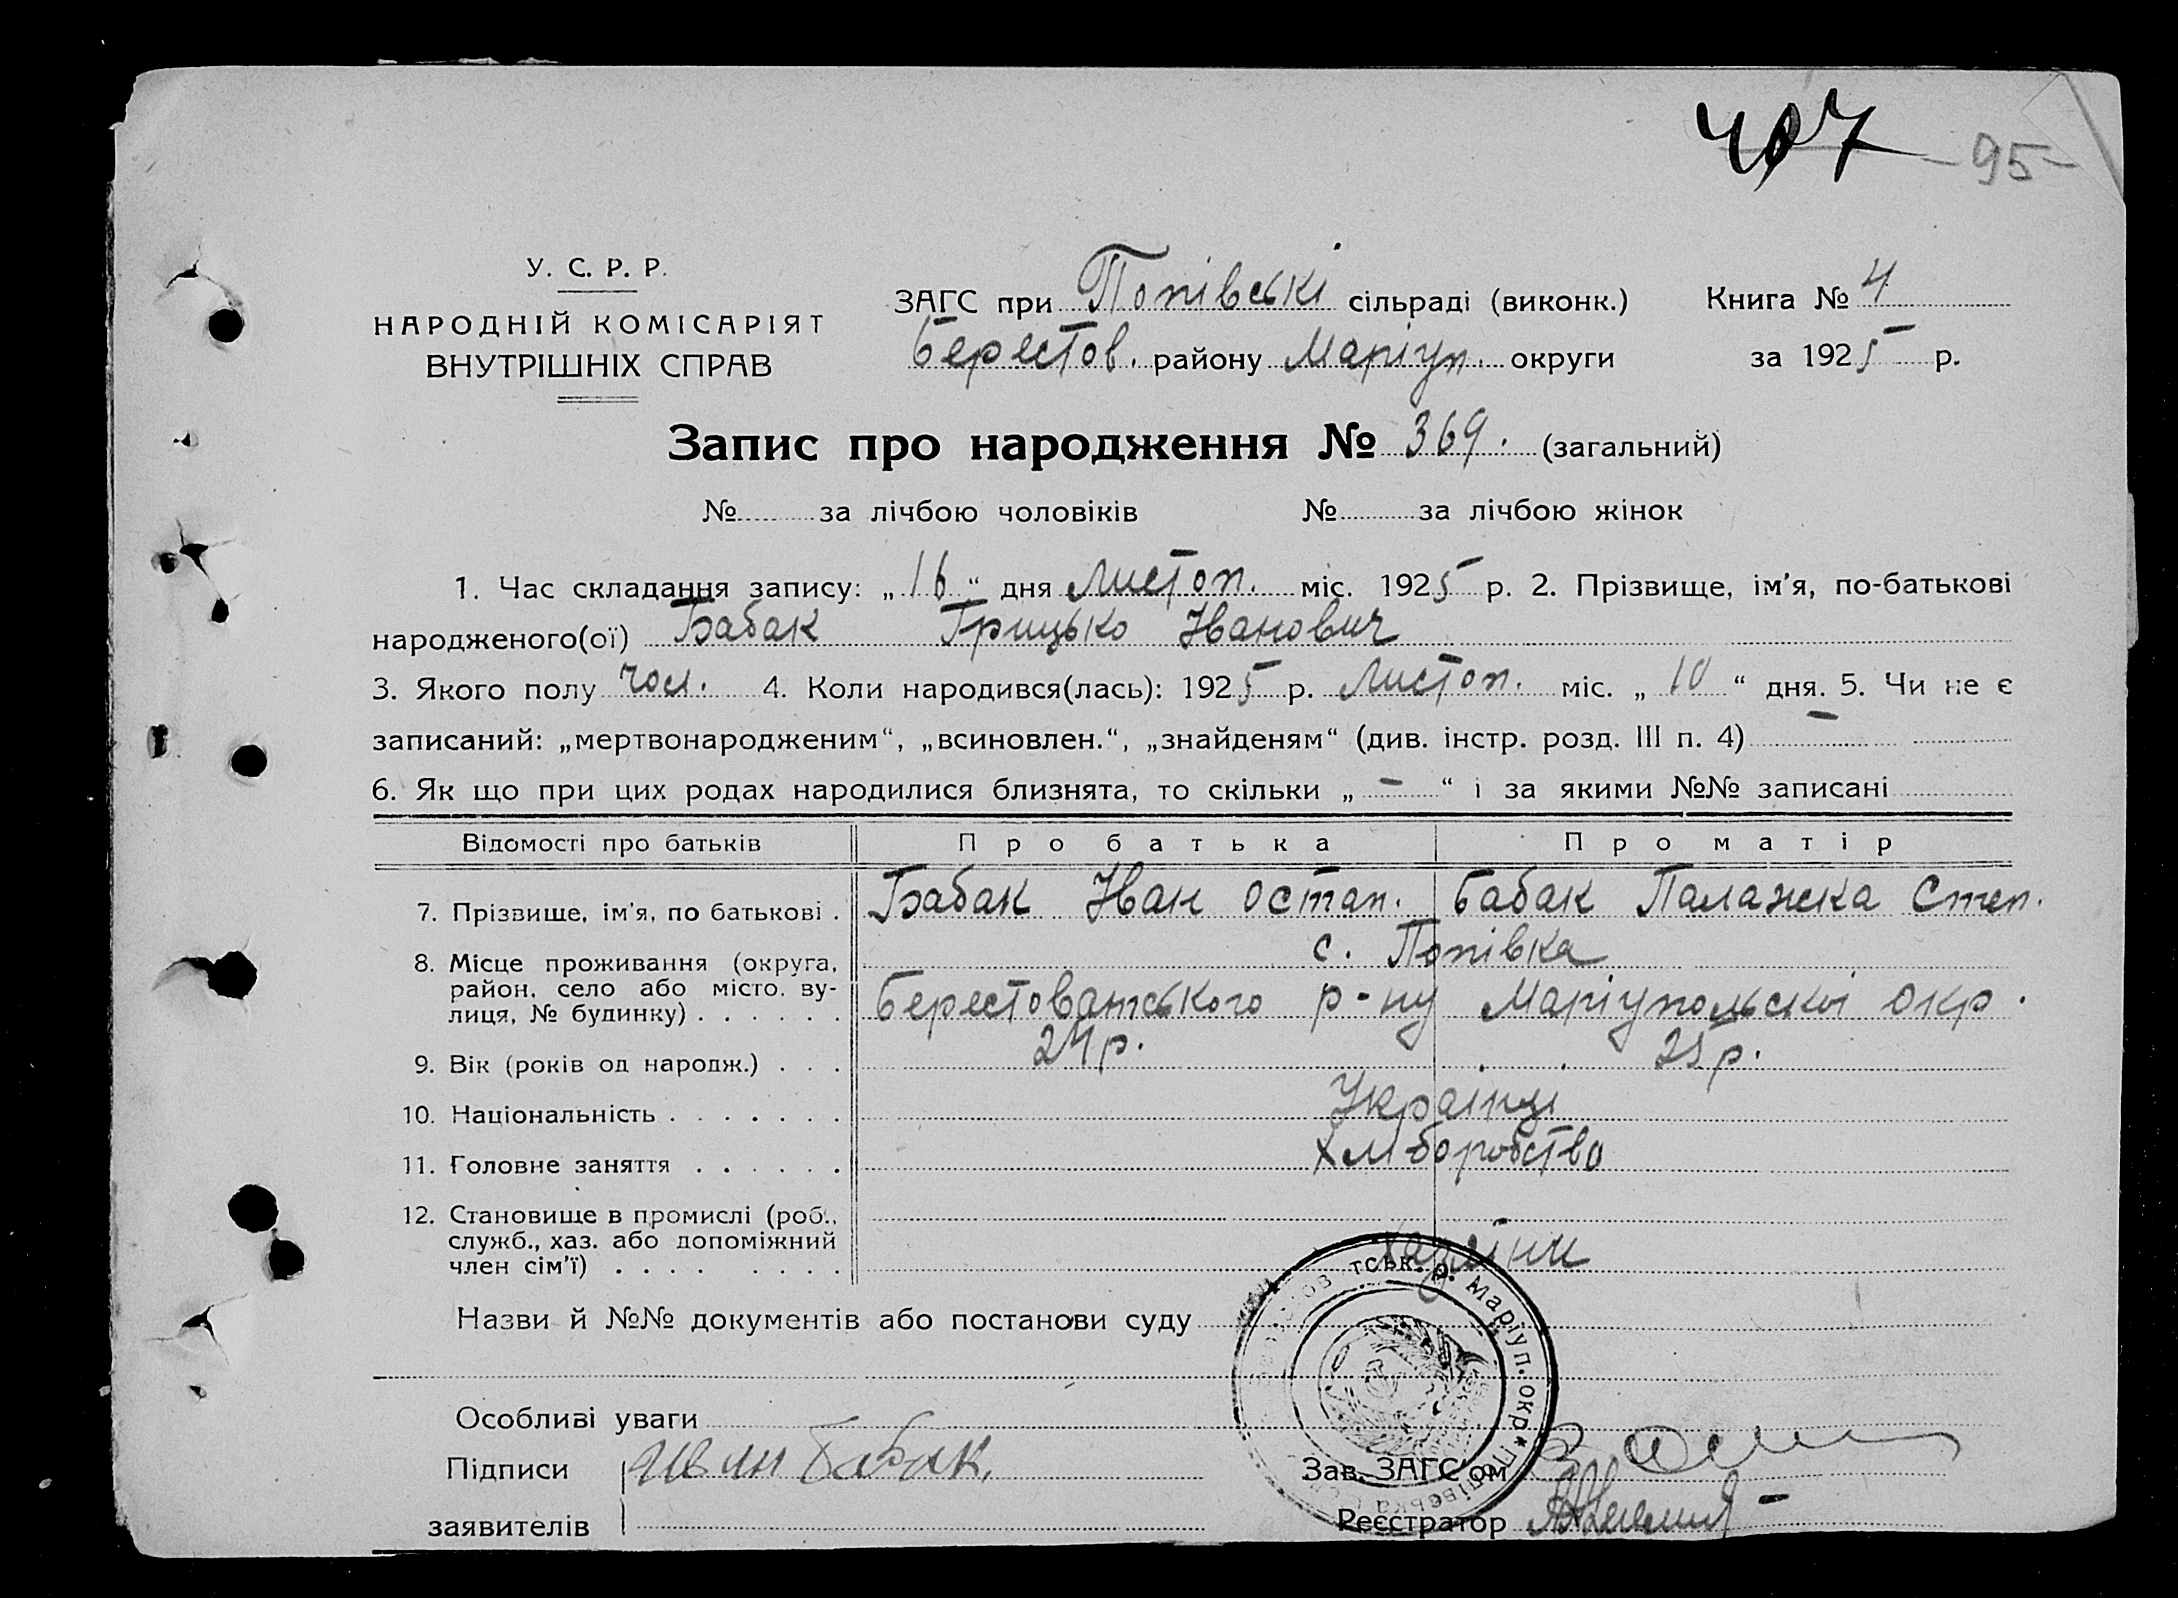 407 -95-
У. С. Р. Р.
НАРОДНІЙ КОМІСАРІЯТ
ВНУТРІШНІХ СПРАВ
ЗАГС при Попівські сільраді (виконк.) Книга № 4
Берестов. району Маріуп. округи за 1925 р.
Запис про народження № 369. (загальний)
№ за лічбою чоловіків № за лічбою жінок
1. Час складання запису: „16“ дня листоп. міс. 1925 р. 2. Прізвище, ім'я, по-батькові
народженого(ої) Бабак Грицько Іванович
3. Якого полу чол. 4. Коли народився(лась): 1925 р. листоп. міс. „10“ дня. 5. Чи не є
записаний: „мертвонародженим“, „всиновлен.“, „знайденям“ (див. інстр. розд. III п. 4) –
6. Як що при цих родах народилися близнята, то скільки „–“ і за якими №№ записані
Відомості про батьків Про батька Про матір
7. Прізвище, ім'я, по батькові . Бабак Иван Остап. Бабак Палажка Степ.
8. Місце проживання (округа, район, село або місто, вулиця, № будинку) . . . . . . с. Попівка
Берестованського р-ну Маріупольської окр.
9. Вік (років од народж.) . . . 24 р. р.
10. Національність . . . . . . . Українці
11. Головне заняття . . . . . . Хліборобство
12. Становище в промислі (роб., служб., хаз. або допоміжний член сім'ї) . . . . . . . . Хазяїни
Назви й №№ документів або постанови суду
тськ. р. Маріуп. окр. * Попівська
Особливі уваги
Підписи Иван Бабак.
Зав. ЗАГС'ом
заявителів
Реєстратор